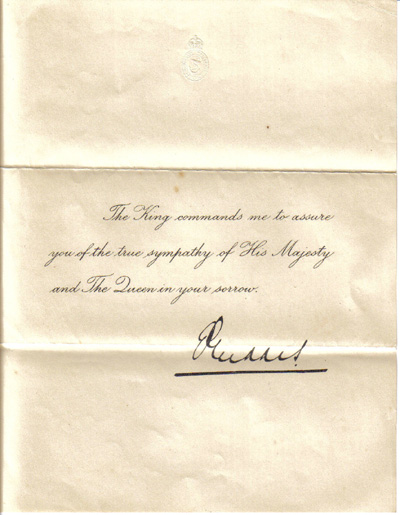 The King commands me to assure
you of the true sympathy of His Majesty
and The Queen in your sorrow.